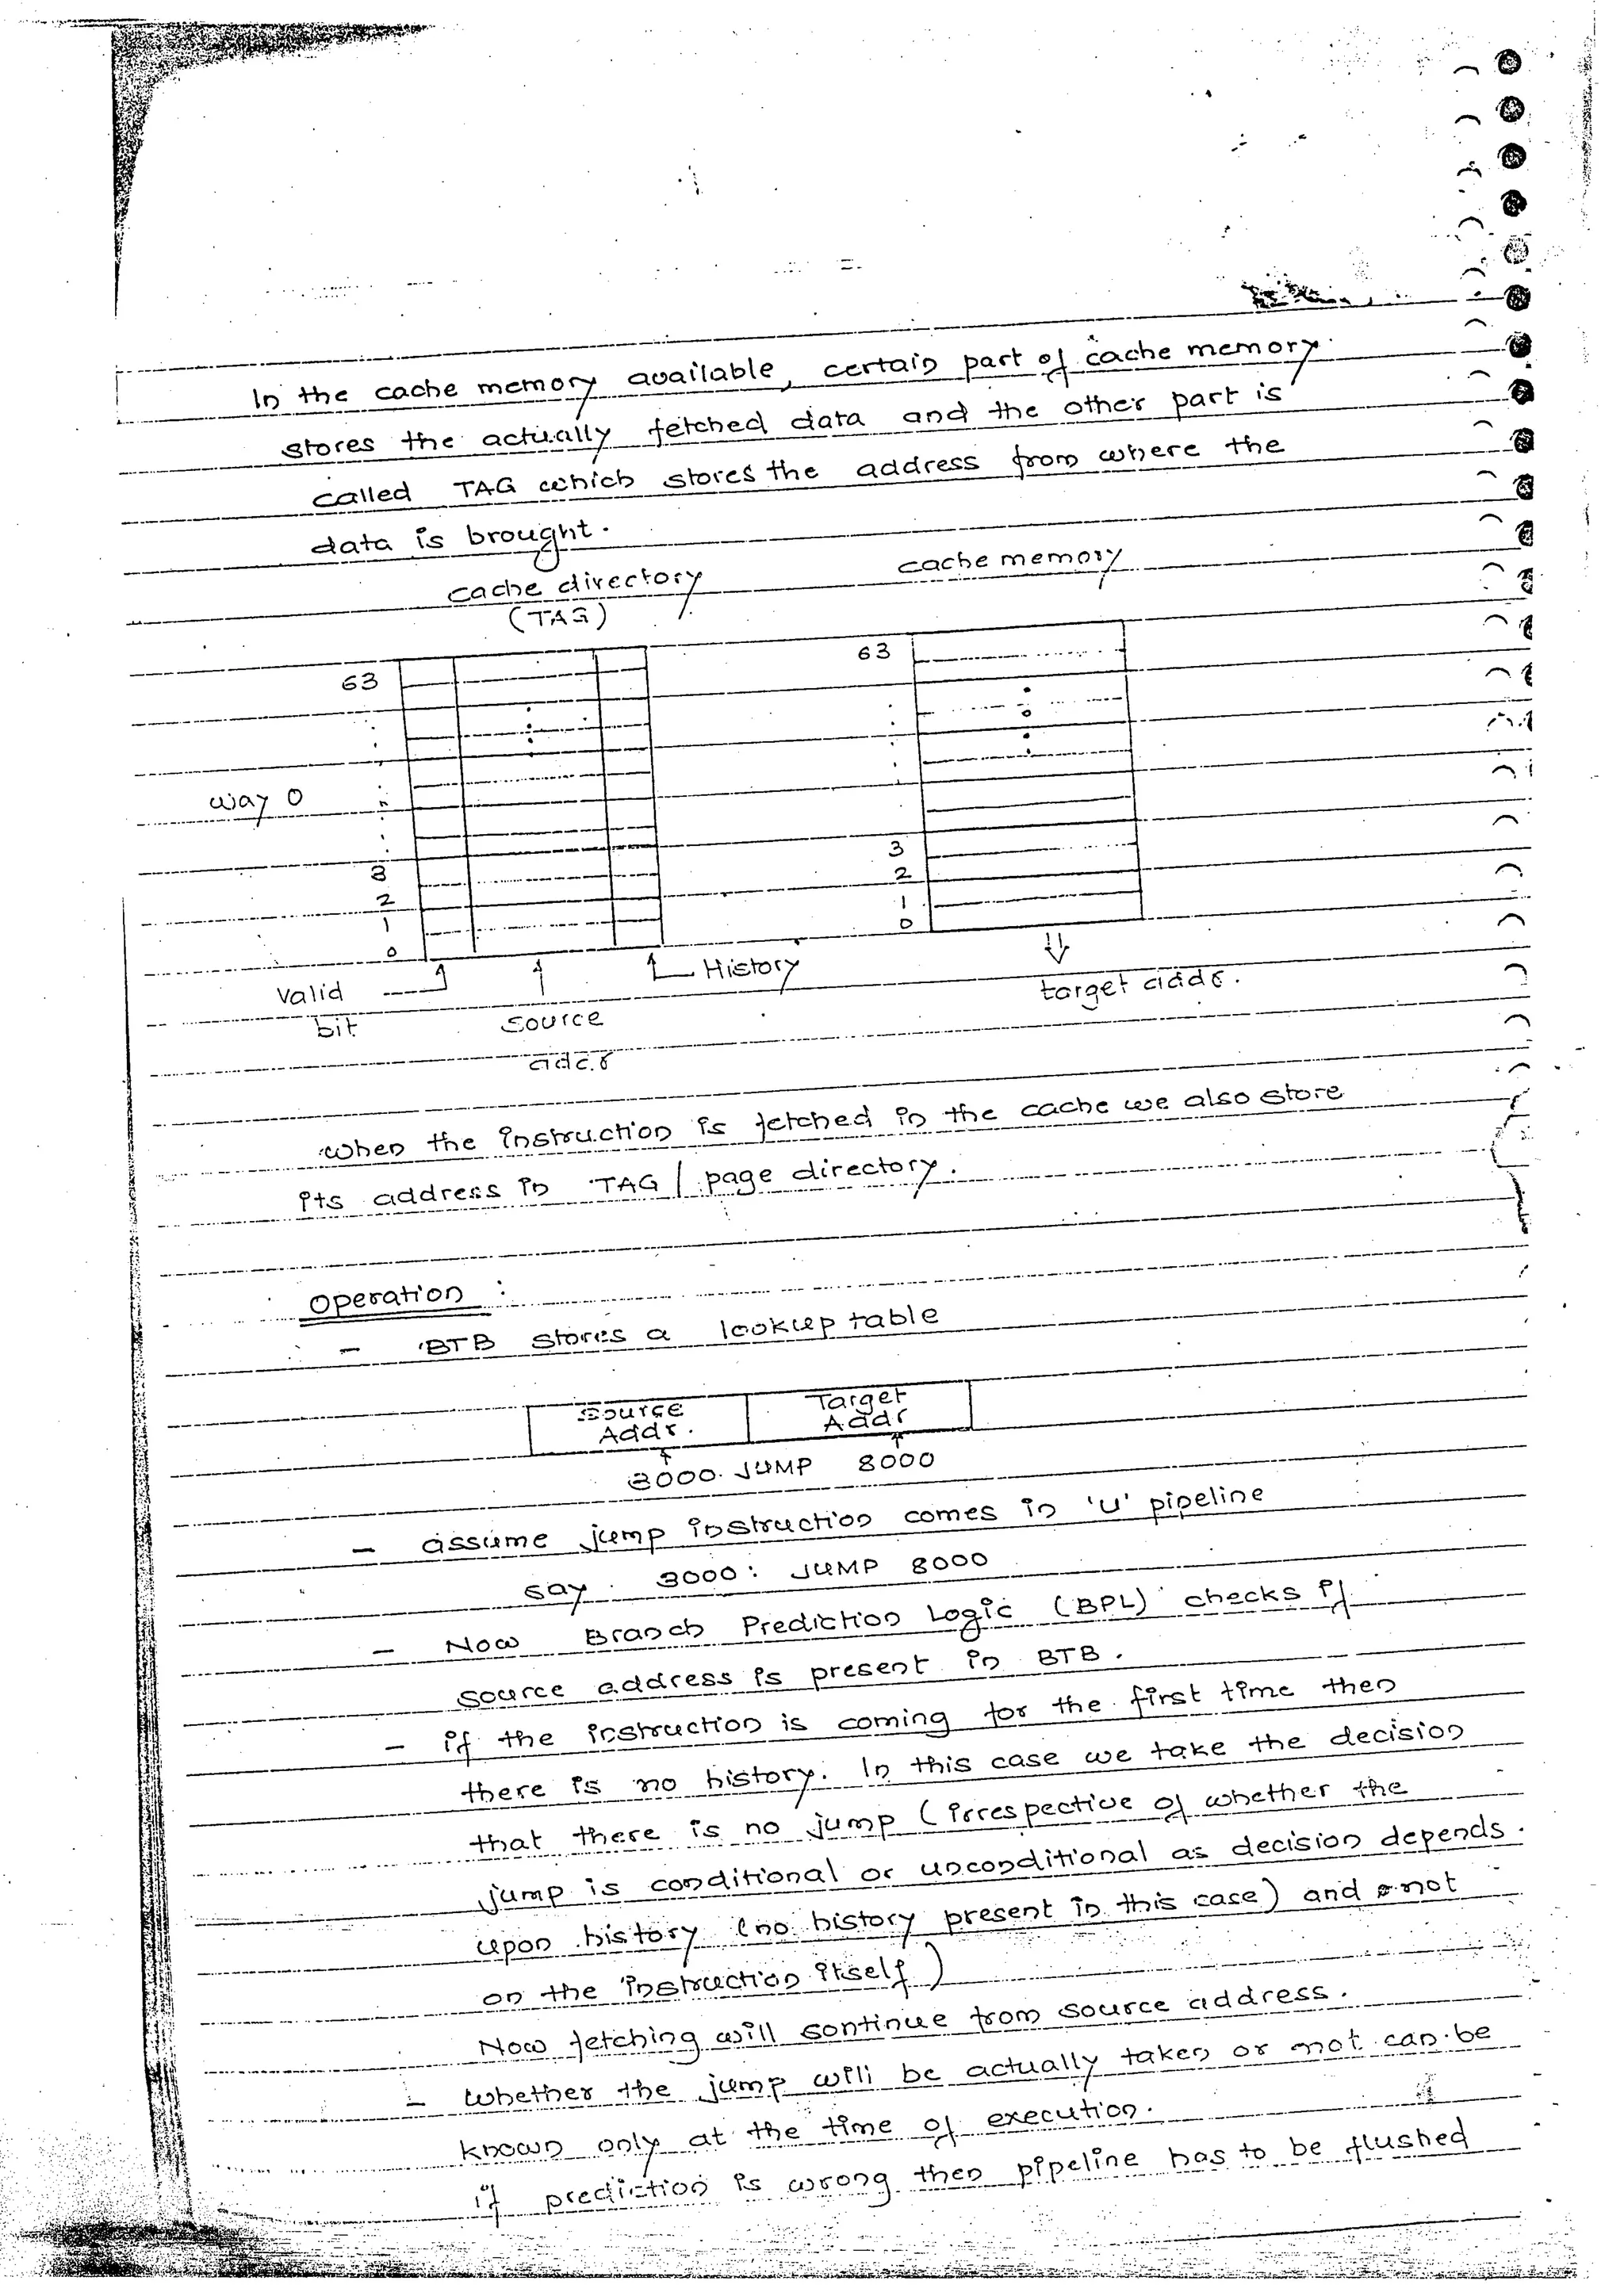 In the cache memory available, certain part of cache memory
stores the actually fetched data and the other part is
called TAG which stores the address from where the
data is brought.
cache directory cache memory
(TAG)
63 63
way 0
3 3
2 2
1 1
0 0
valid History target addr.
bit source
addr
when the instruction is fetched in the cache we also store
its address in TAG / page directory.
Operation :
- BTB stores a lookup table
Source Target
Addr. Addr
3000. JUMP 8000
- assume jump instruction comes in 'U' pipeline
say 3000: JUMP 8000
- Now Branch Prediction Logic (BPL) checks if
source address is present in BTB.
- if the instruction is coming for the first time then
there is no history. In this case we take the decision
that there is no jump (irrespective of whether the
jump is conditional or unconditional as decision depends
upon history (no history present in this case) and not
on the instruction itself)
Now fetching will continue from source address.
- whether the jump will be actually taken or not can be
known only at the time of execution.
if prediction is wrong then pipeline has to be flushed